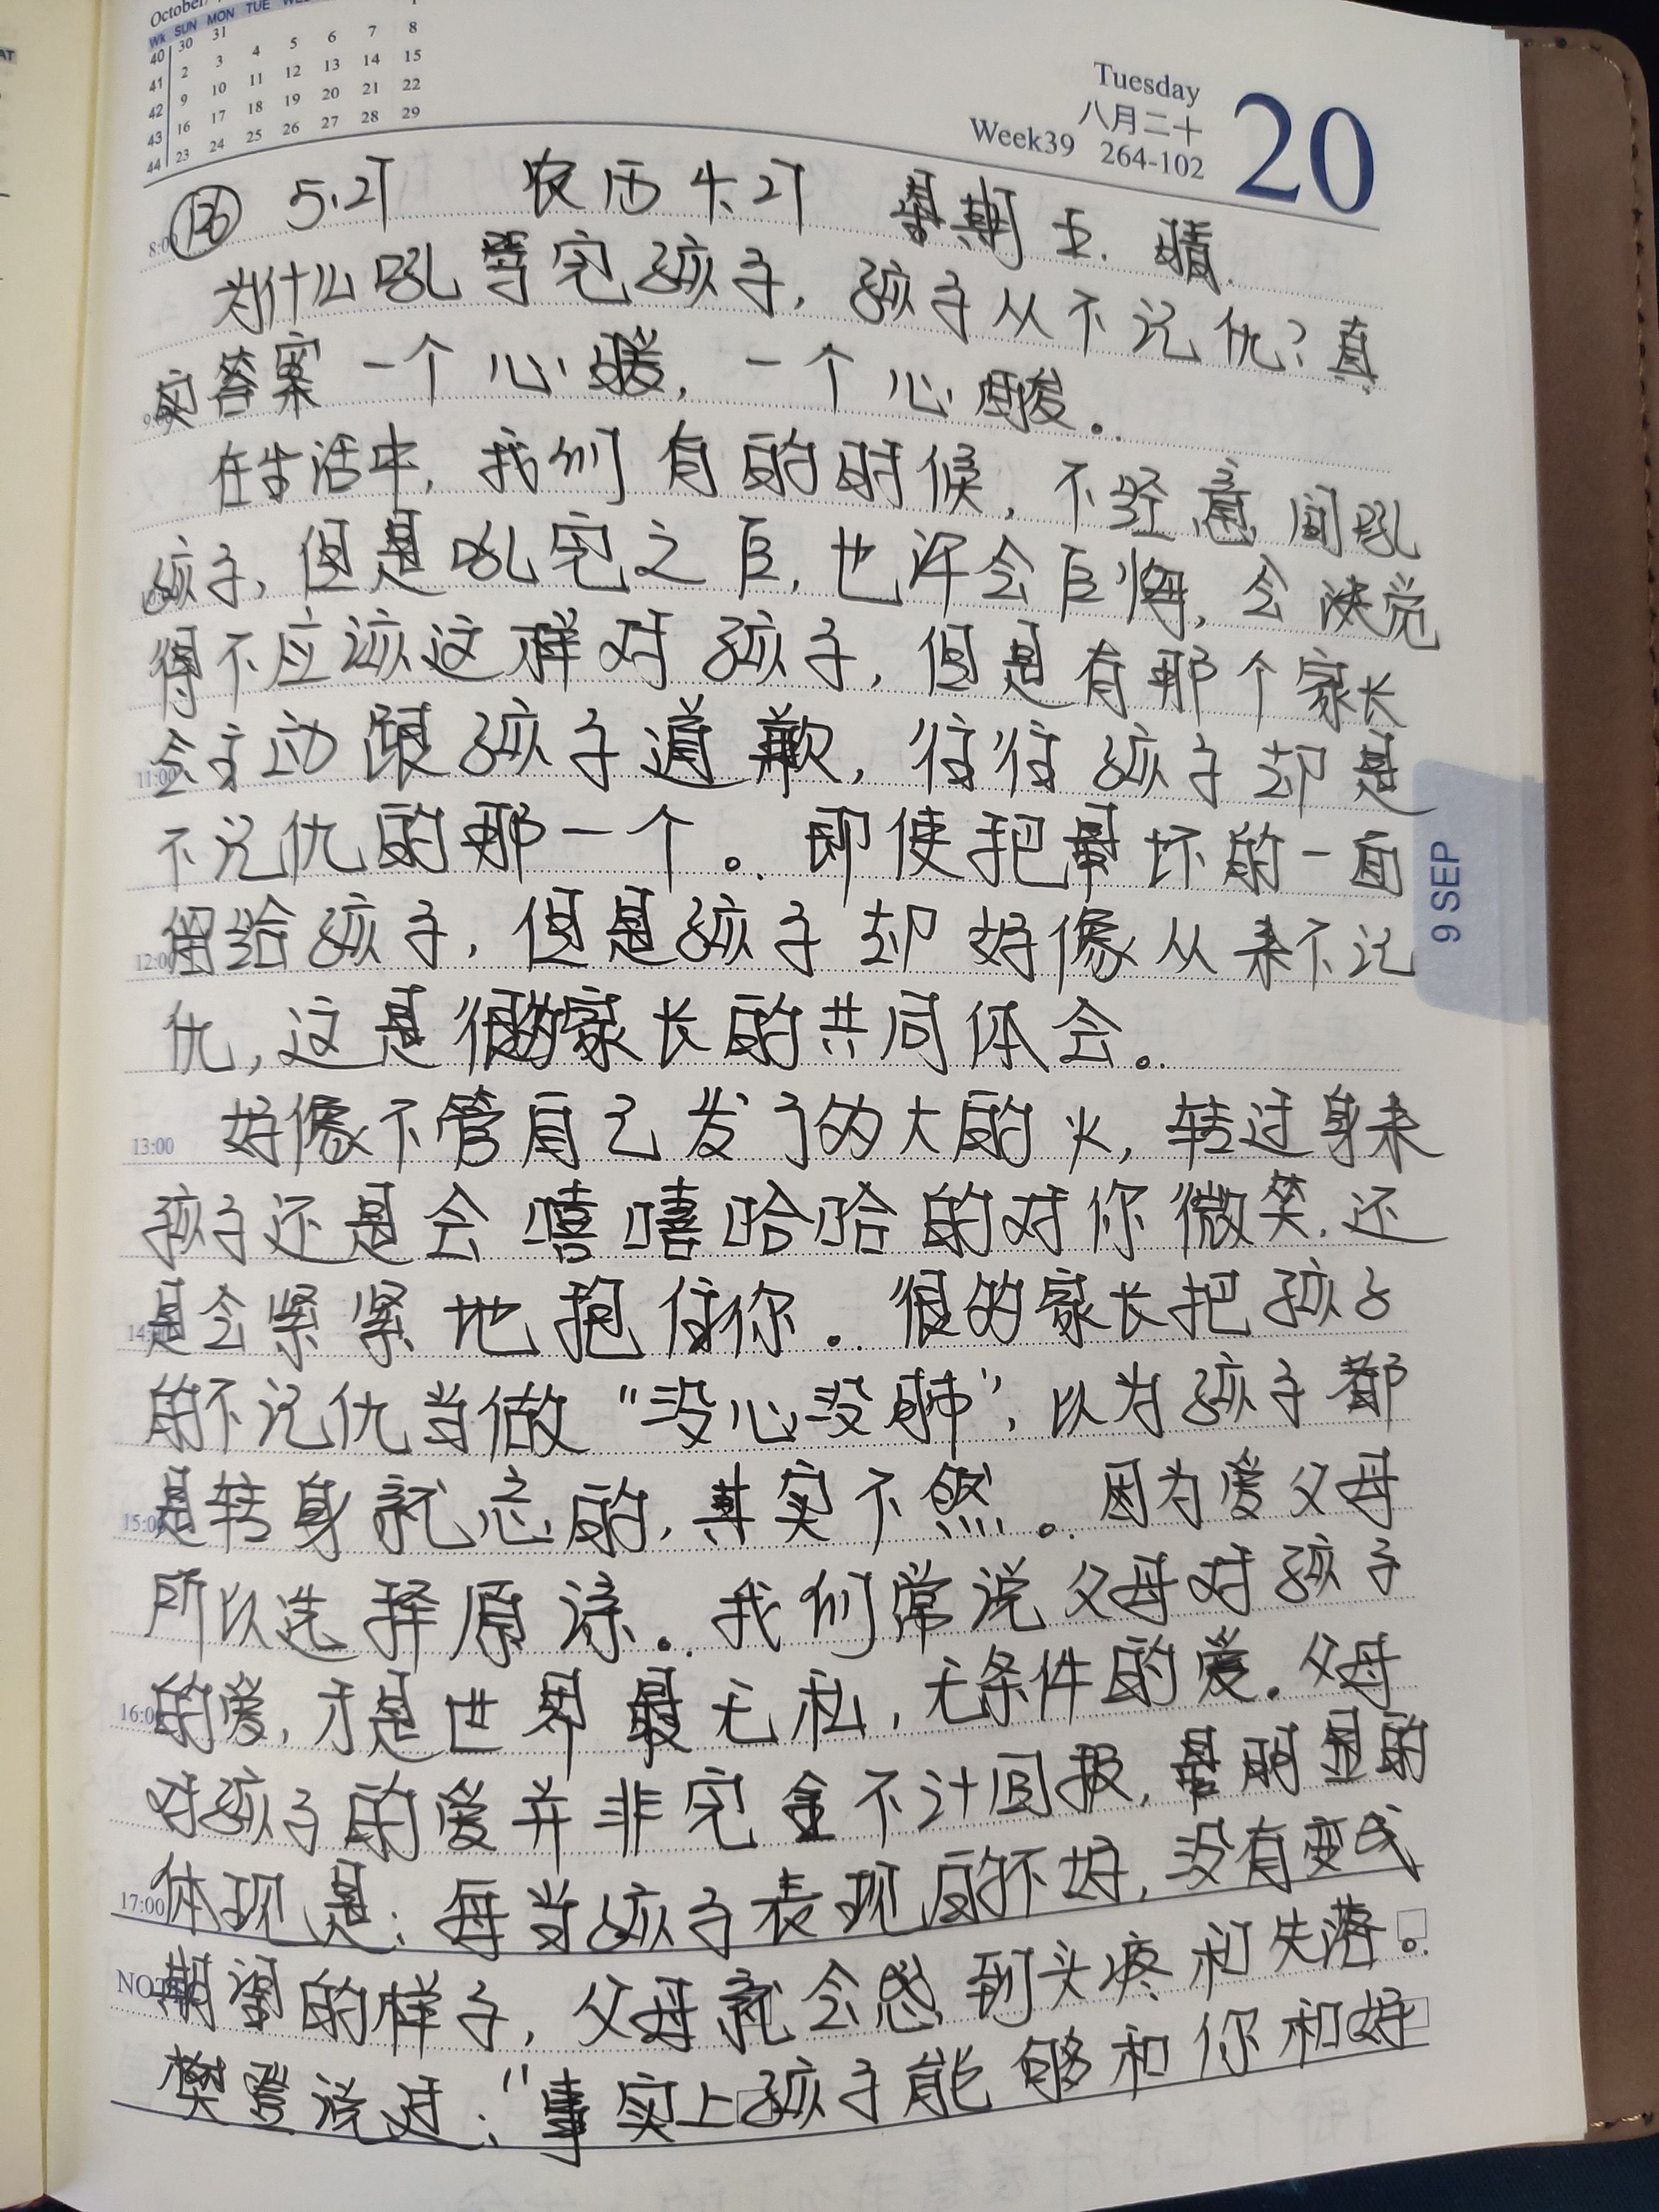 October
Wk SUN MON TUE
40 30 31
41 2 3 4 5 6 7 8
42 9 10 11 12 13 14 15
43 16 17 18 19 20 21 22
44 23 24 25 26 27 28 29
Tuesday
八月二十
Week39 264-102
20
5.27 农历 4.27 星期五. 晴.
为什么吼骂完孩子,孩子从不记仇?真
实答案一个心暖,一个心酸。
在生活中,我们有的时候,不经意间吼
孩子,但是吼完之后,也许会后悔,会觉
得不应该这样对孩子,但是有那个家长
会主动跟孩子道歉,往往孩子却是
不记仇的那一个。即使把最坏的一面
留给孩子,但是孩子却好像从来不记
仇,这是很多家长的共同体会。
好像不管自己发了多大的火,转过身来
孩子还是会嘻嘻哈哈的对你微笑,还
是会紧紧地抱住你。很多家长把孩子
的不记仇当做“没心没肺”,以为孩子都
是转身就忘的,其实不然。因为爱父母
所以选择原谅。我们常说父母对孩子
的爱,才是世界最无私,无条件的爱。父母
对孩子的爱并非完全不计回报,最明显的
体现是:每当孩子表现的不好,没有变成
期望的样子,父母就会感到头疼和失落。
樊登说过:“事实上孩子能够和你和好
8:00
11:00
12:00
13:00
15:00
16:00
17:00
9 SEP